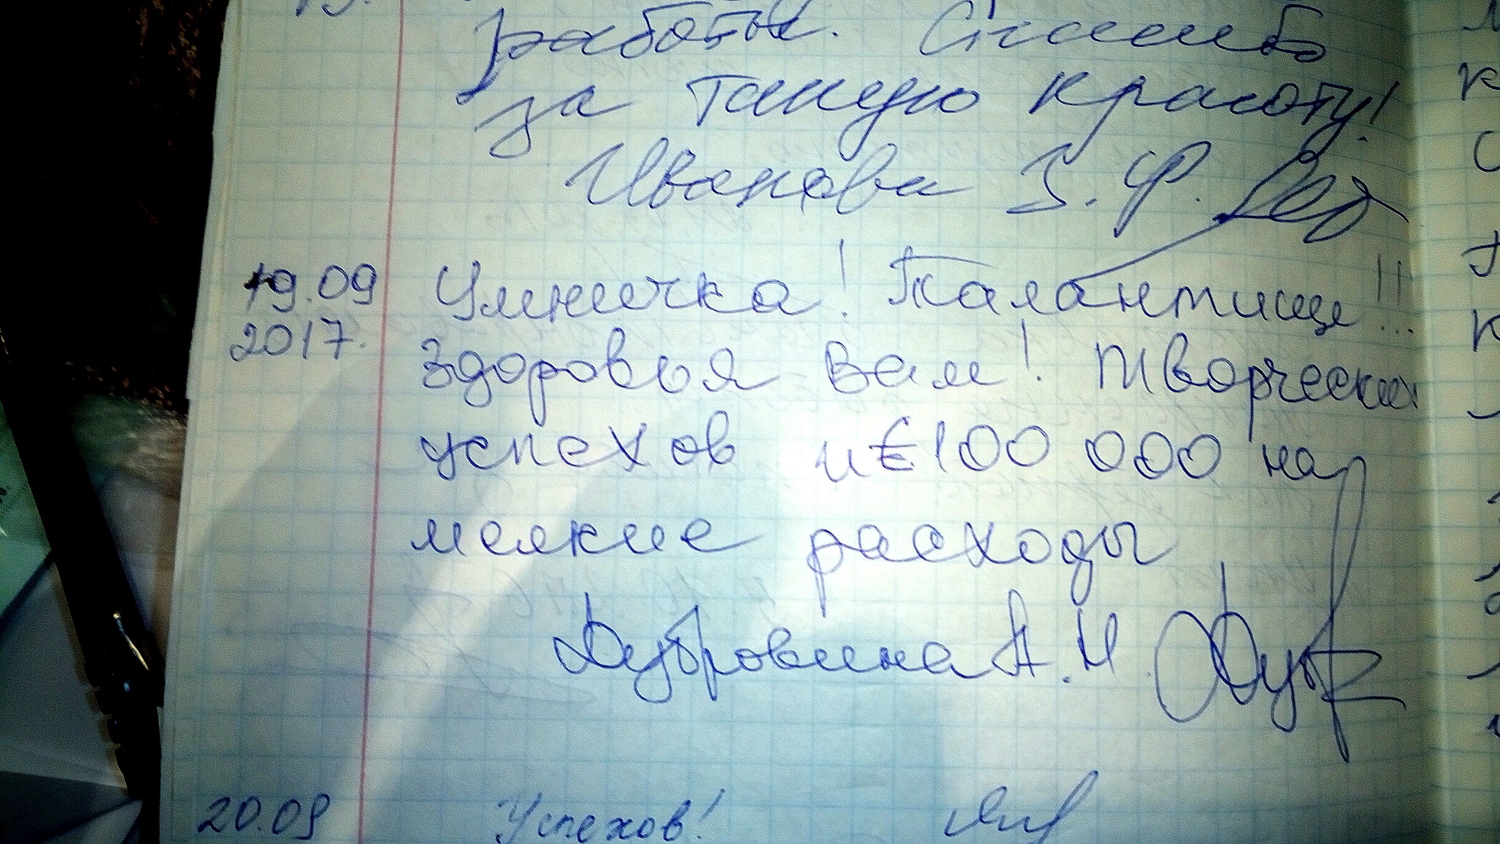 работы. Спасибо
за такую красоту!
Иванова З.Ф.
19.09 Умничка! Талантище!!!
2017. Здоровья Вам! Творческих
успехов и €100 000 на
мелкие расходы
Дубровина А.И.
20.09 Успехов!